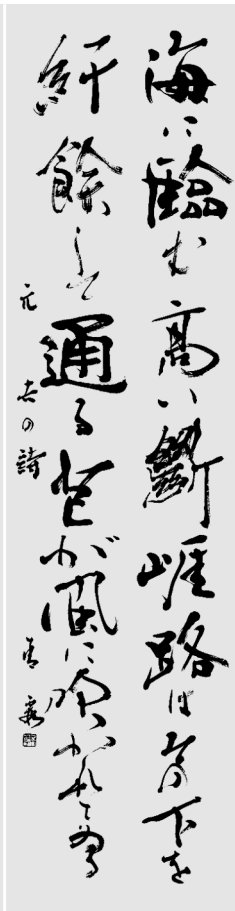 海に臨む高い斷崕路は下を
紆餘して通る芒が風に吹かれてゐる
元吉の詩